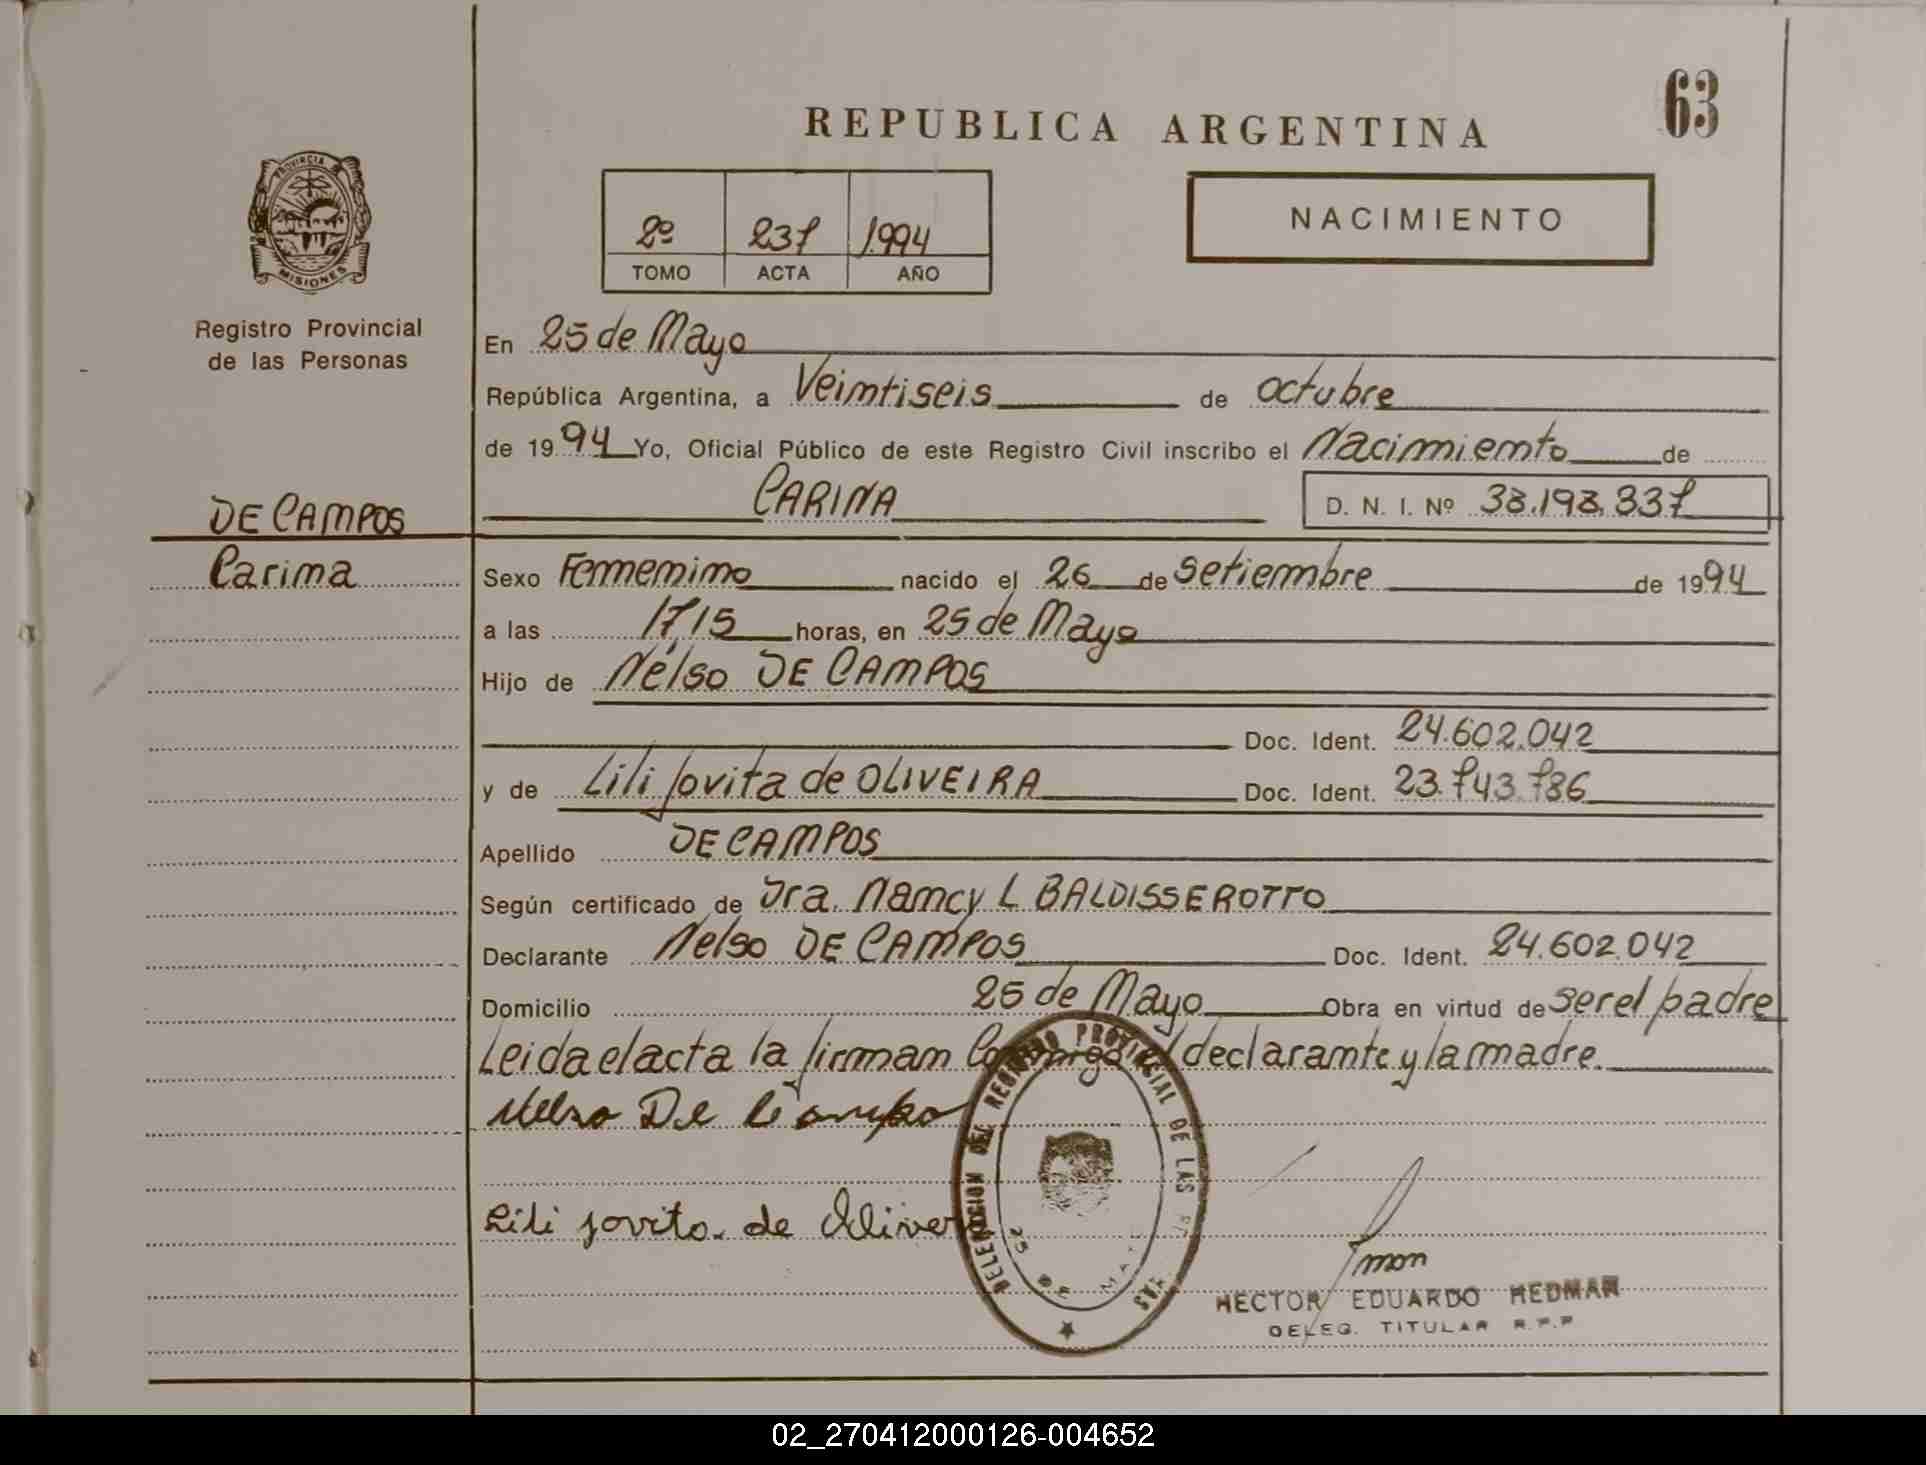 63
REPUBLICA ARGENTINA
PROVINCIA DE MISIONES
2º 237 1.994
TOMO ACTA AÑO
NACIMIENTO
Registro Provincial
de las Personas
En 25 de Mayo
República Argentina, a Veintiseis de octubre
de 1994 Yo, Oficial Público de este Registro Civil inscribo el Nacimiento de
CARINA D. N. I. Nº 38.198.337
DE CAMPOS
Carina
Sexo Femenino nacido el 26 de setiembre de 1994
a las 17,15 horas, en 25 de Mayo
Hijo de Nelso DE CAMPOS
Doc. Ident. 24.602.042
y de Lili Jovita de OLIVEIRA Doc. Ident. 23.743.786
Apellido DE CAMPOS
Según certificado de Dra. Nancy L BALDISSEROTTO
Declarante Nelso DE CAMPOS Doc. Ident. 24.602.042
Domicilio 25 de Mayo Obra en virtud de ser el padre
Leida el acta la firman Conmigo el declarante y la madre.
Nelso De Campo
Lili Jovita de Oliveira
DELEGACION DEL REGISTRO PROVINCIAL DE LAS PERSONAS
25 DE MAYO
HECTOR EDUARDO HEDMAN
DELEG. TITULAR R.P.P
02_270412000126-004652